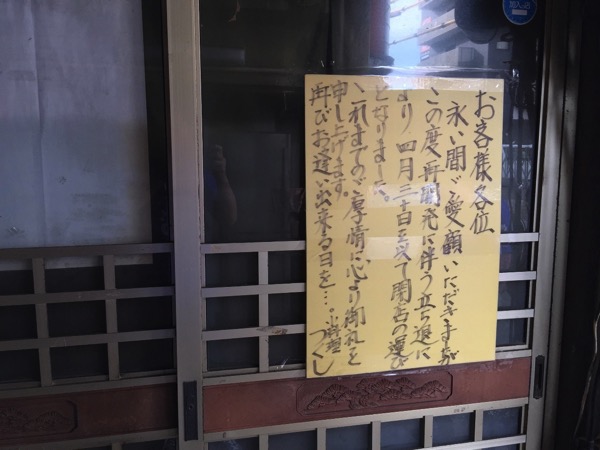 お客様各位
永い間ご愛顧いただきましたが
この度再開発に伴う立ち退に
より四月三十日を以て閉店の運び
となりました。
これまでのご厚情に心より御礼を
申し上げます。
再びお逢い出来る日を…。
小料理
つくし